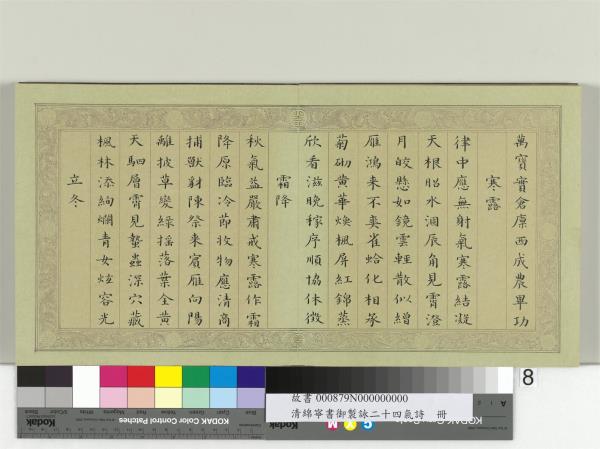 萬寶實倉廪西成農畢功
寒露
律中應無射氣寒露結凝
天根昭水涸辰角見霄澄
月皎懸如鏡雲輕散似繒
雁鴻来不爽雀蛤化相承
菊砌黄華煥楓屏紅錦蒸
欣看滋晩稼序順協休徵
霜降
秋氣益嚴肅戒寒露作霜
降原臨冷節收物應清商
捕獸豺陳祭来賓雁向陽
離披草變緑揺落葉全黄
天駟層霄見蟄蟲深穴藏
楓林添絢爛青女炫容光
立冬
8
故書 000879N000000000
清綿寧書御製詠二十四氣詩 冊
KODAK Color Control Patches
C Y M